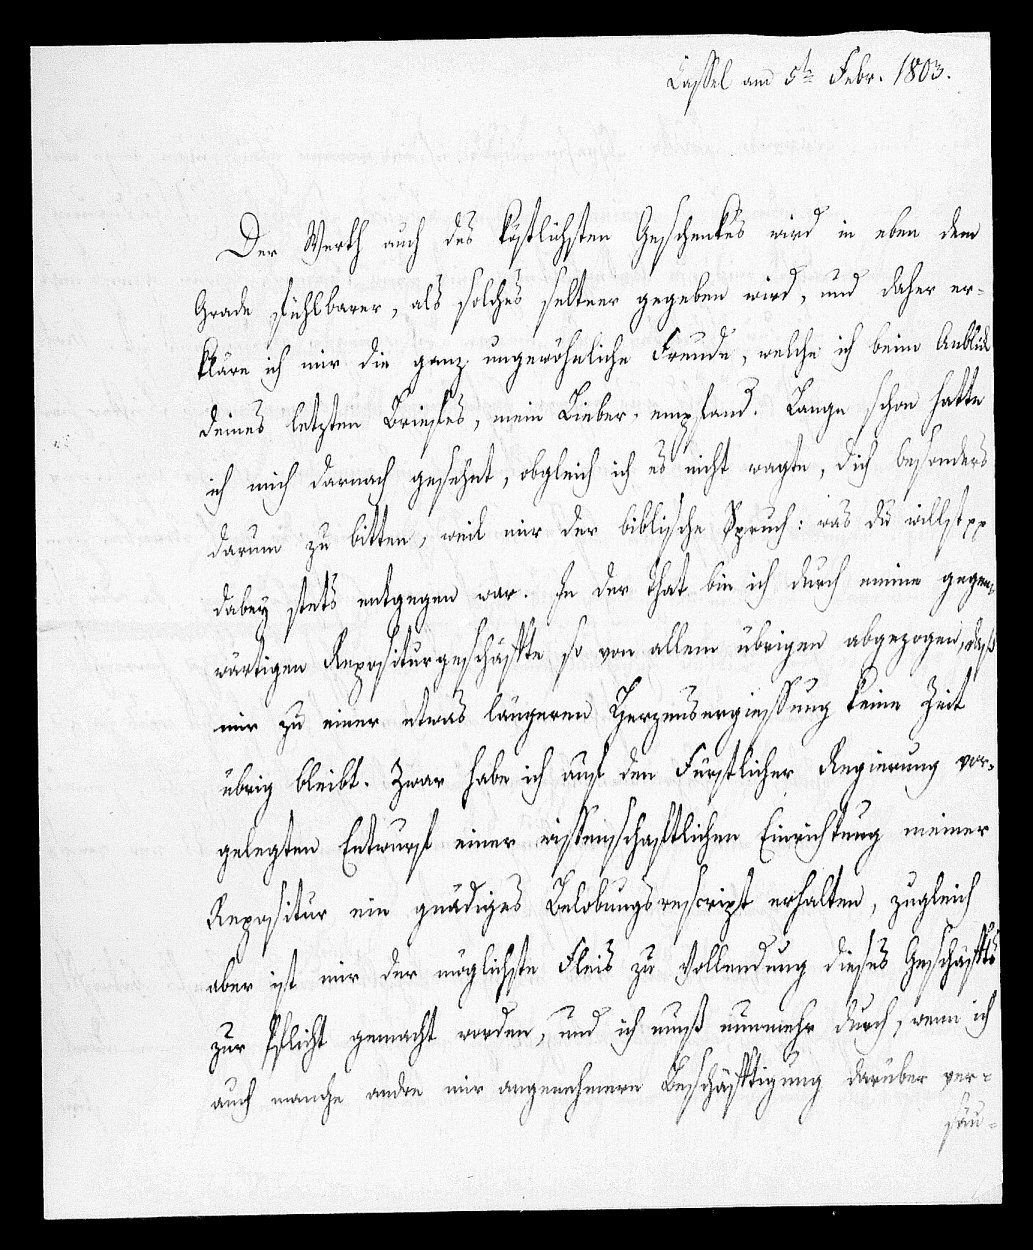 Cassel am 5ten Febr. 1803.
Der Werth auch des köstlichsten Geschenkes wird in eben dem
Grade fühlbarer, als solches seltner gegeben wird, und daher er-
kläre ich mir die ganz ungewöhnliche Freude, welche ich beim Anblick
deines letzten Briefes, mein Lieber, empfand. Lange schon hatte
ich mich darnach gesehnt, obgleich ich es nicht wagte, dich besonders
darum zu bitten, weil mir der biblische Spruch: was du willst pp
dabey stets entgegen war. In der That bin ich durch meine gegen-
wärtigen Repositurgeschäffte so von allem übrigen abgezogen, daß
mir zu einer etwas längeren Herzensergiessung keine Zeit
übrig bleibt. Zwar habe ich auf den Fürstlicher Regierung vor-
gelegten Entwurf einer wissenschaftlichen Einrichtung meiner
Repositur ein gnädiges Belobungsrescript erhalten, zugleich
aber ist mir der möglichste Fleis zu Vollendung dieses Geschäffts
zur Pflicht gemacht worden, und ich muß nunmehr durch, wenn ich
auch manche andre mir angenehmere Beschäfftigung darüber ver-
säu-